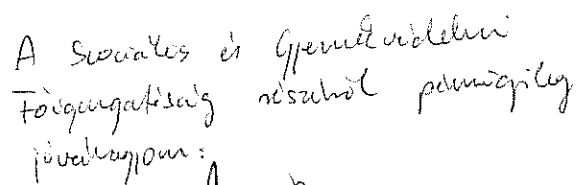 A Szociális és Gyermekvédelmi
Főigazgatóság részéről pénzügyileg
jóváhagyom: